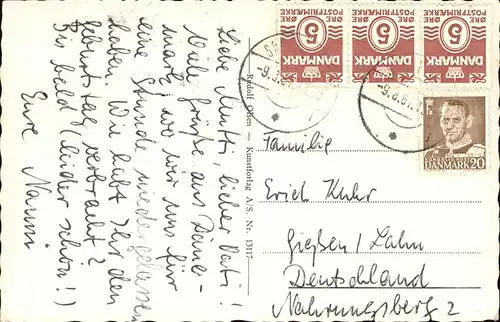 Liebe Mutti, lieber Vati!
Viele Grüße aus Däne-
mark, wo wir uns für
eine Stunde niedergelassen
haben. Wie habt Ihr den
Geburtstag verbracht?
Bis bald (leider schon!)
Eure Nanni
Rudolf Olsen — Kunstforlag A/S. Nr. 13117
POSTFRIMÆRKE
5 ØRE
DANMARK
POSTFRIMÆRKE
5 ØRE
DANMARK
POSTFRIMÆRKE
5 ØRE
DANMARK
DANMARK 20
Familie
Erich Kuhr
Gießen / Lahn
Deutschland
Nahrungsberg 2